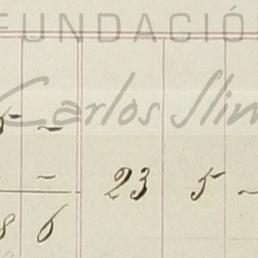 FUNDACIÓ
Carlos Slim
5 –
– 23 5 –
8 6